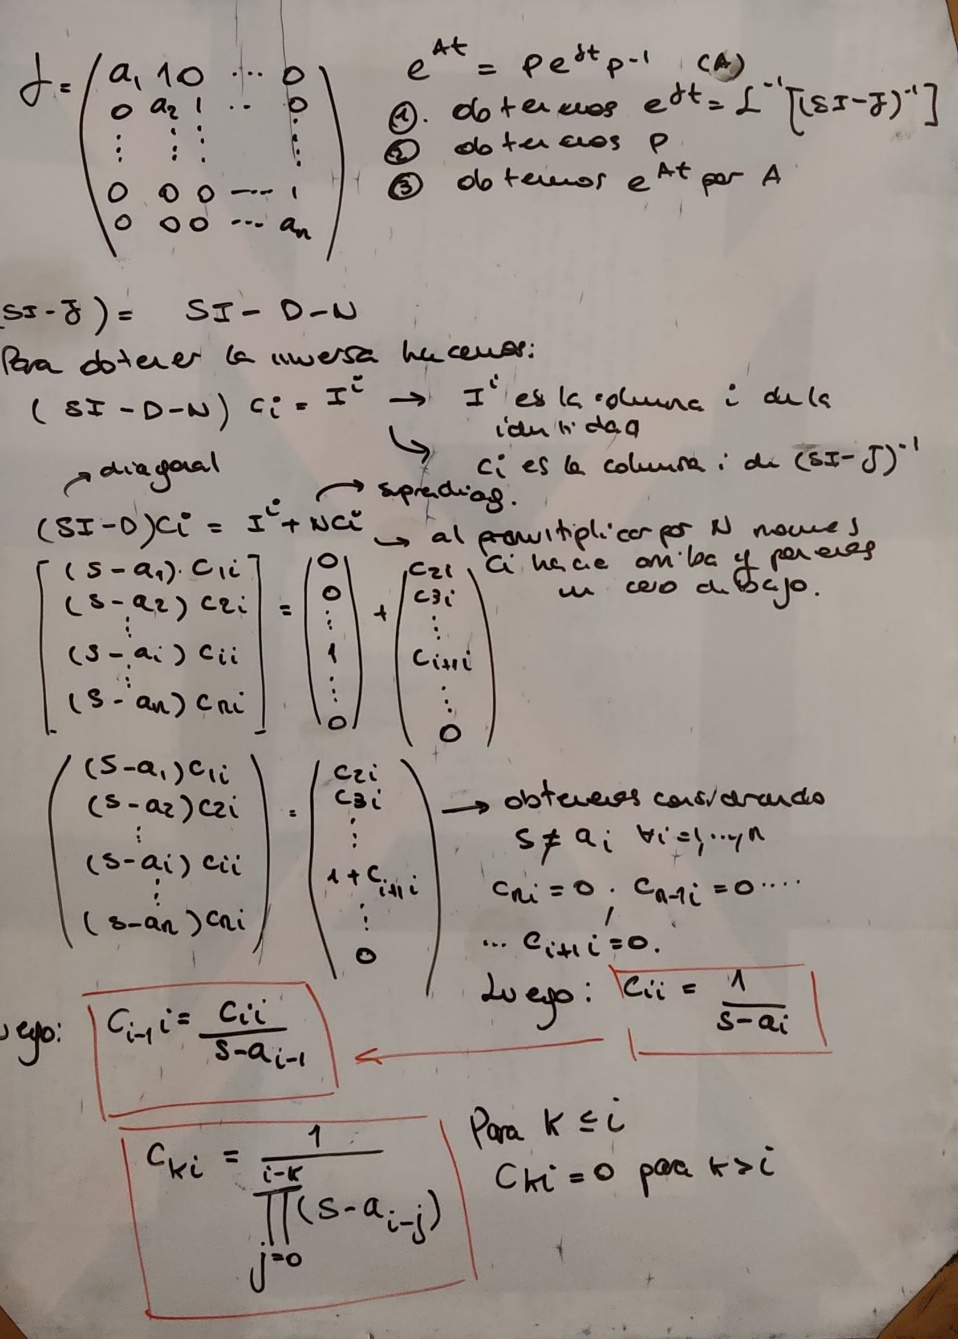 J = ( a₁ 1 0 ... 0
0 a₂ 1 .. 0
⋮ ⋮ ⋮ ⋮
0 0 0 --- 1
0 0 0 ... aₙ )
e^{At} = P e^{Jt} P⁻¹ (A)
①. obtenemos e^{Jt} = L⁻¹[(SI-J)⁻¹]
② obtenemos P
③ obtenemos e^{At} por A
(SI-J) = SI - D - N
Para obtener la inversa hacemos:
(SI-D-N) ci = I^i → I^i es la columna i de la
identidad
↳ ci es la columna i de (SI-J)⁻¹
↗ diagonal
→ sprediag.
(SI-D)ci = I^i + Nci → al premultiplicar por N movemos
ci hacia arriba y ponemos
un cero debajo.
[ (s-a₁). c₁i
(s-a₂) c₂i
⋮
(s-ai) cii
⋮
(s-an) cni ] = ( 0
0
⋮
1
⋮
0 ) + ( c₂i
c₃i
⋮
ci+1i
⋮
0 )
( (s-a₁)c₁i
(s-a₂)c₂i
⋮
(s-ai) cii
⋮
(s-an)cni ) = ( c₂i
c₃i
⋮
1+ci+1i
⋮
0 )
→ obtenemos considerando
s ≠ ai ∀i=1,...,n
cni = 0, cn-1i = 0....
... ci+1i = 0.
Luego: cii = 1/(s-ai)
uego: ci-1i = cii/(s-ai-1)
cki = 1/∏_{j=0}^{i-k}(s-a_{i-j})
Para k ≤ i
cki = 0 para k>i